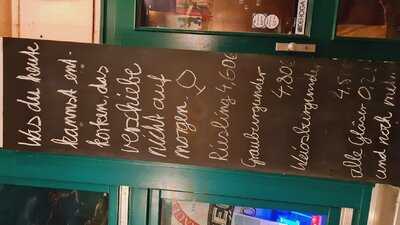 Was du heute
kannst ent-
korken, das
verschiebe
nicht auf
morgen
Riesling 4,60€
Grauburgunder
4,80€
Weissburgunder
4,5
alle Gläser 0,2l
und noch mehr